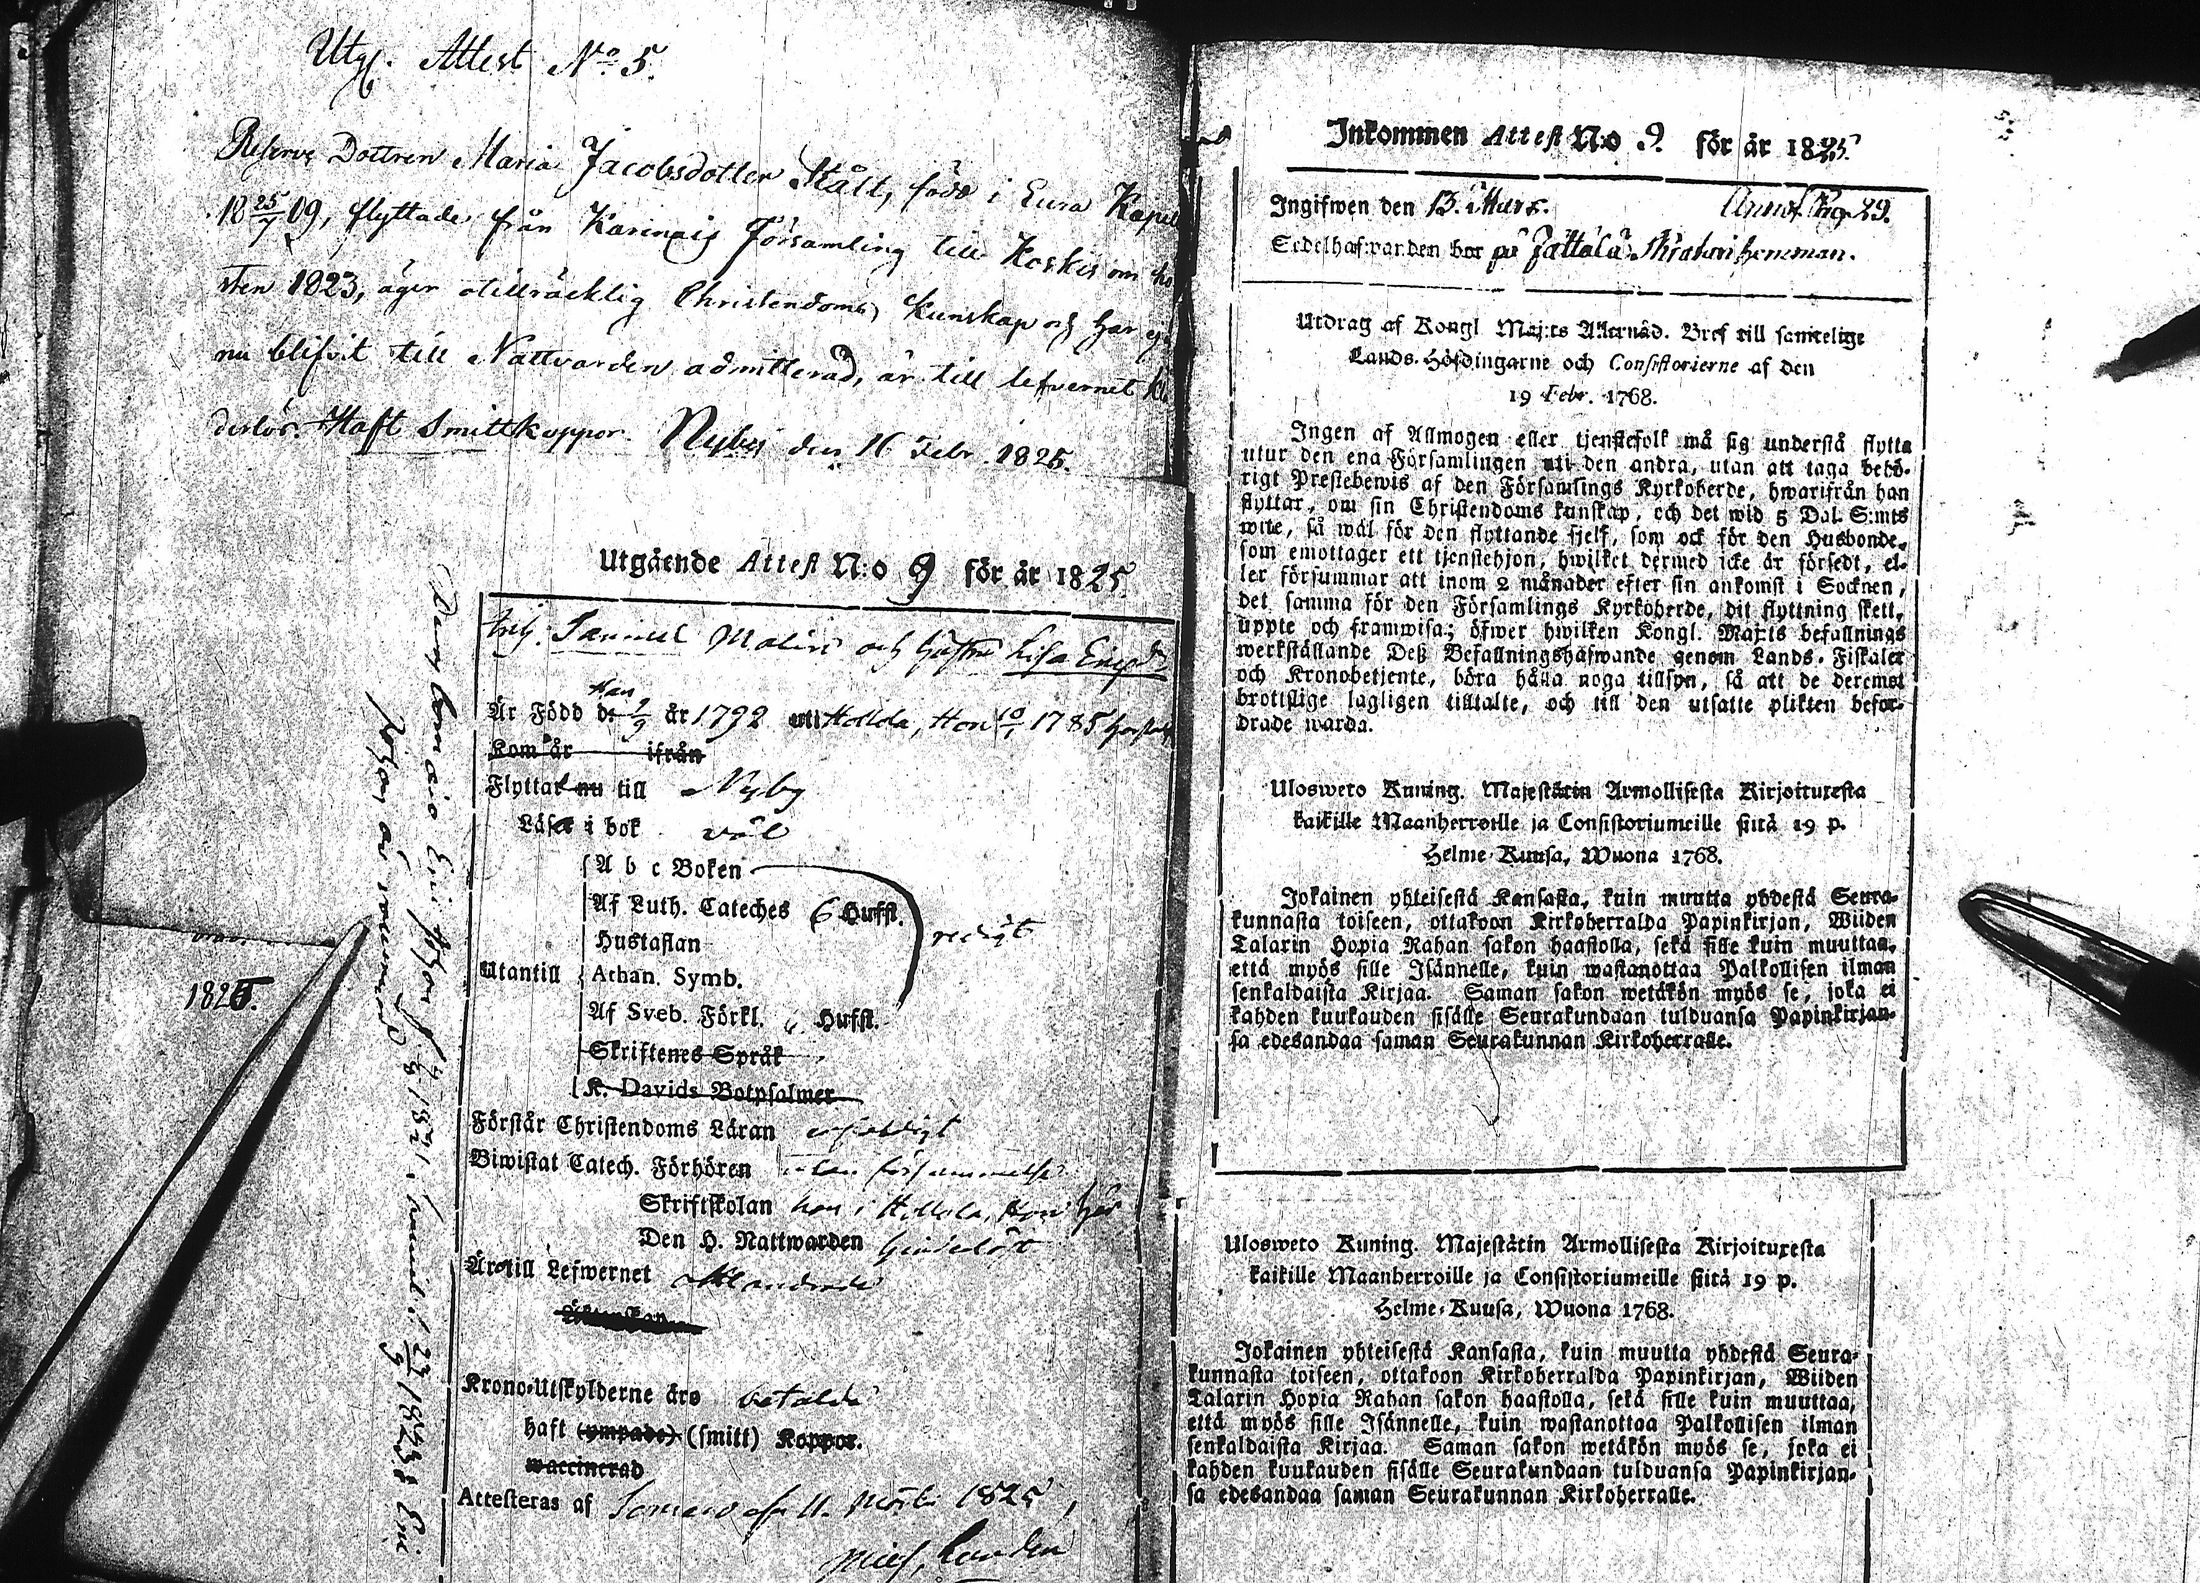 Utg. Attest No 5.
Reserve Dottren Maria Jacobsdotter Stålt, född i Eura Kapell
18 25/7 09, flyttade från Karinais Församling till Koskis om hö
sten 1823, äger otillräcklig Christendoms Kunskap och har ej
nu blifvit till Nattvarden admitterad, är till lefvernet kl
derlös. Haft Smittkoppor. Nyby den 16 Febr. 1825.
1825.
Utgående Attest N:o 9 för år 1825.
Samuel Malin och hustru Lisa
Han
Är Född d. 2/9 år 1792 uti Hollola, Hon 1785
Kom år ifrån
Flyttar nu till Nyby
Läser i bok väl
A b c Boken
Af Luth. Cateches 6 Hufst.
redigt
Hustaflan
Utantill Athan. Symb.
Af Sveb. Förkl. Hufst.
Skriftenes Språk
K. Davids Botpsalmer
Förstår Christendoms Läran
Biwistat Catech. Förhören utan försummelse
Skriftskolan han i Hollola, Hon här
Den H. Nattwarden
Äro till Lefwernet oklandrade
Krono-Utskylderne äro betalde
haft (ympade) (smitt) Koppor.
waccinerad
Attesteras af Somero 11. Martii 1825,
Inkommen Attest N:o 9. för år 1825.
Ingifwen den 13. Mars. pag. 29.
Sedelhafwarden bor på hemman.
Utdrag af Kongl. Maj:ts Allernåd. Bref till samtelige
Lands-Höfdingarne och Consistorierne af den
19 Febr. 1768.
Ingen af Allmogen eller tjenstefolk må sig understå flytta
utur den ena Församlingen uti den andra, utan att taga behö-
rigt Prestebewis af den Församlings Kyrkoherde, hwarifrån han
flyttar, om sin Christendoms kunskap, och det wid 5 Dal. S:mts
wite, så wäl för den flyttande sjelf, som ock för den Husbonde,
som emottager ett tjenstehjon, hwilket dermed icke är försedt, el-
ler försummar att inom 2 månader efter sin ankomst i Socknen,
det samma för den Församlings Kyrkoherde, dit flyttning skett,
uppte och framwisa; öfwer hwilken Kongl. Maj:ts befallnings
werkställande Deß Befallningshafwande genom Lands-Fiskaler
och Kronobetjente, böra hålla noga tillsyn, så att de deremot
brottslige lagligen tilltalte, och till den utsatte plikten befor-
drade warda.
Ulosweto Kuning. Majestätin Armollisesta Kirjoituxesta
kaikille Maanherroille ja Consistoriumeille siitä 19 p.
Helme-Kuusa, Wuona 1768.
Jokainen yhteisestä Kansasta, kuin muutta yhdestä Seura-
kunnasta toiseen, ottakoon Kirkoherralda Papinkirjan, Wiiden
Talarin Hopia Rahan sakon haastolla, sekä sille kuin muuttaa,
että myös sille Isännelle, kuin wastanottaa Palkollisen ilman
senkaldaista Kirjaa. Saman sakon wetäkön myös se, joka ei
kahden kuukauden sisälle Seurakundaan tulduansa Papinkirjan-
sa edesandaa saman Seurakunnan Kirkoherralle.
Ulosweto Kuning. Majestätin Armollisesta Kirjoituxesta
kaikille Maanherroille ja Consistoriumeille siitä 19 p.
Helme-Kuusa, Wuona 1768.
Jokainen yhteisestä Kansasta, kuin muutta yhdestä Seura-
kunnasta toiseen, ottakoon Kirkoherralda Papinkirjan, Wiiden
Talarin Hopia Rahan sakon haastolla, sekä sille kuin muuttaa,
että myös sille Isännelle, kuin wastanottaa Palkollisen ilman
senkaldaista Kirjaa. Saman sakon wetäkön myös se, joka ei
kahden kuukauden sisälle Seurakundaan tulduansa Papinkirjan-
sa edesandaa saman Seurakunnan Kirkoherralle.